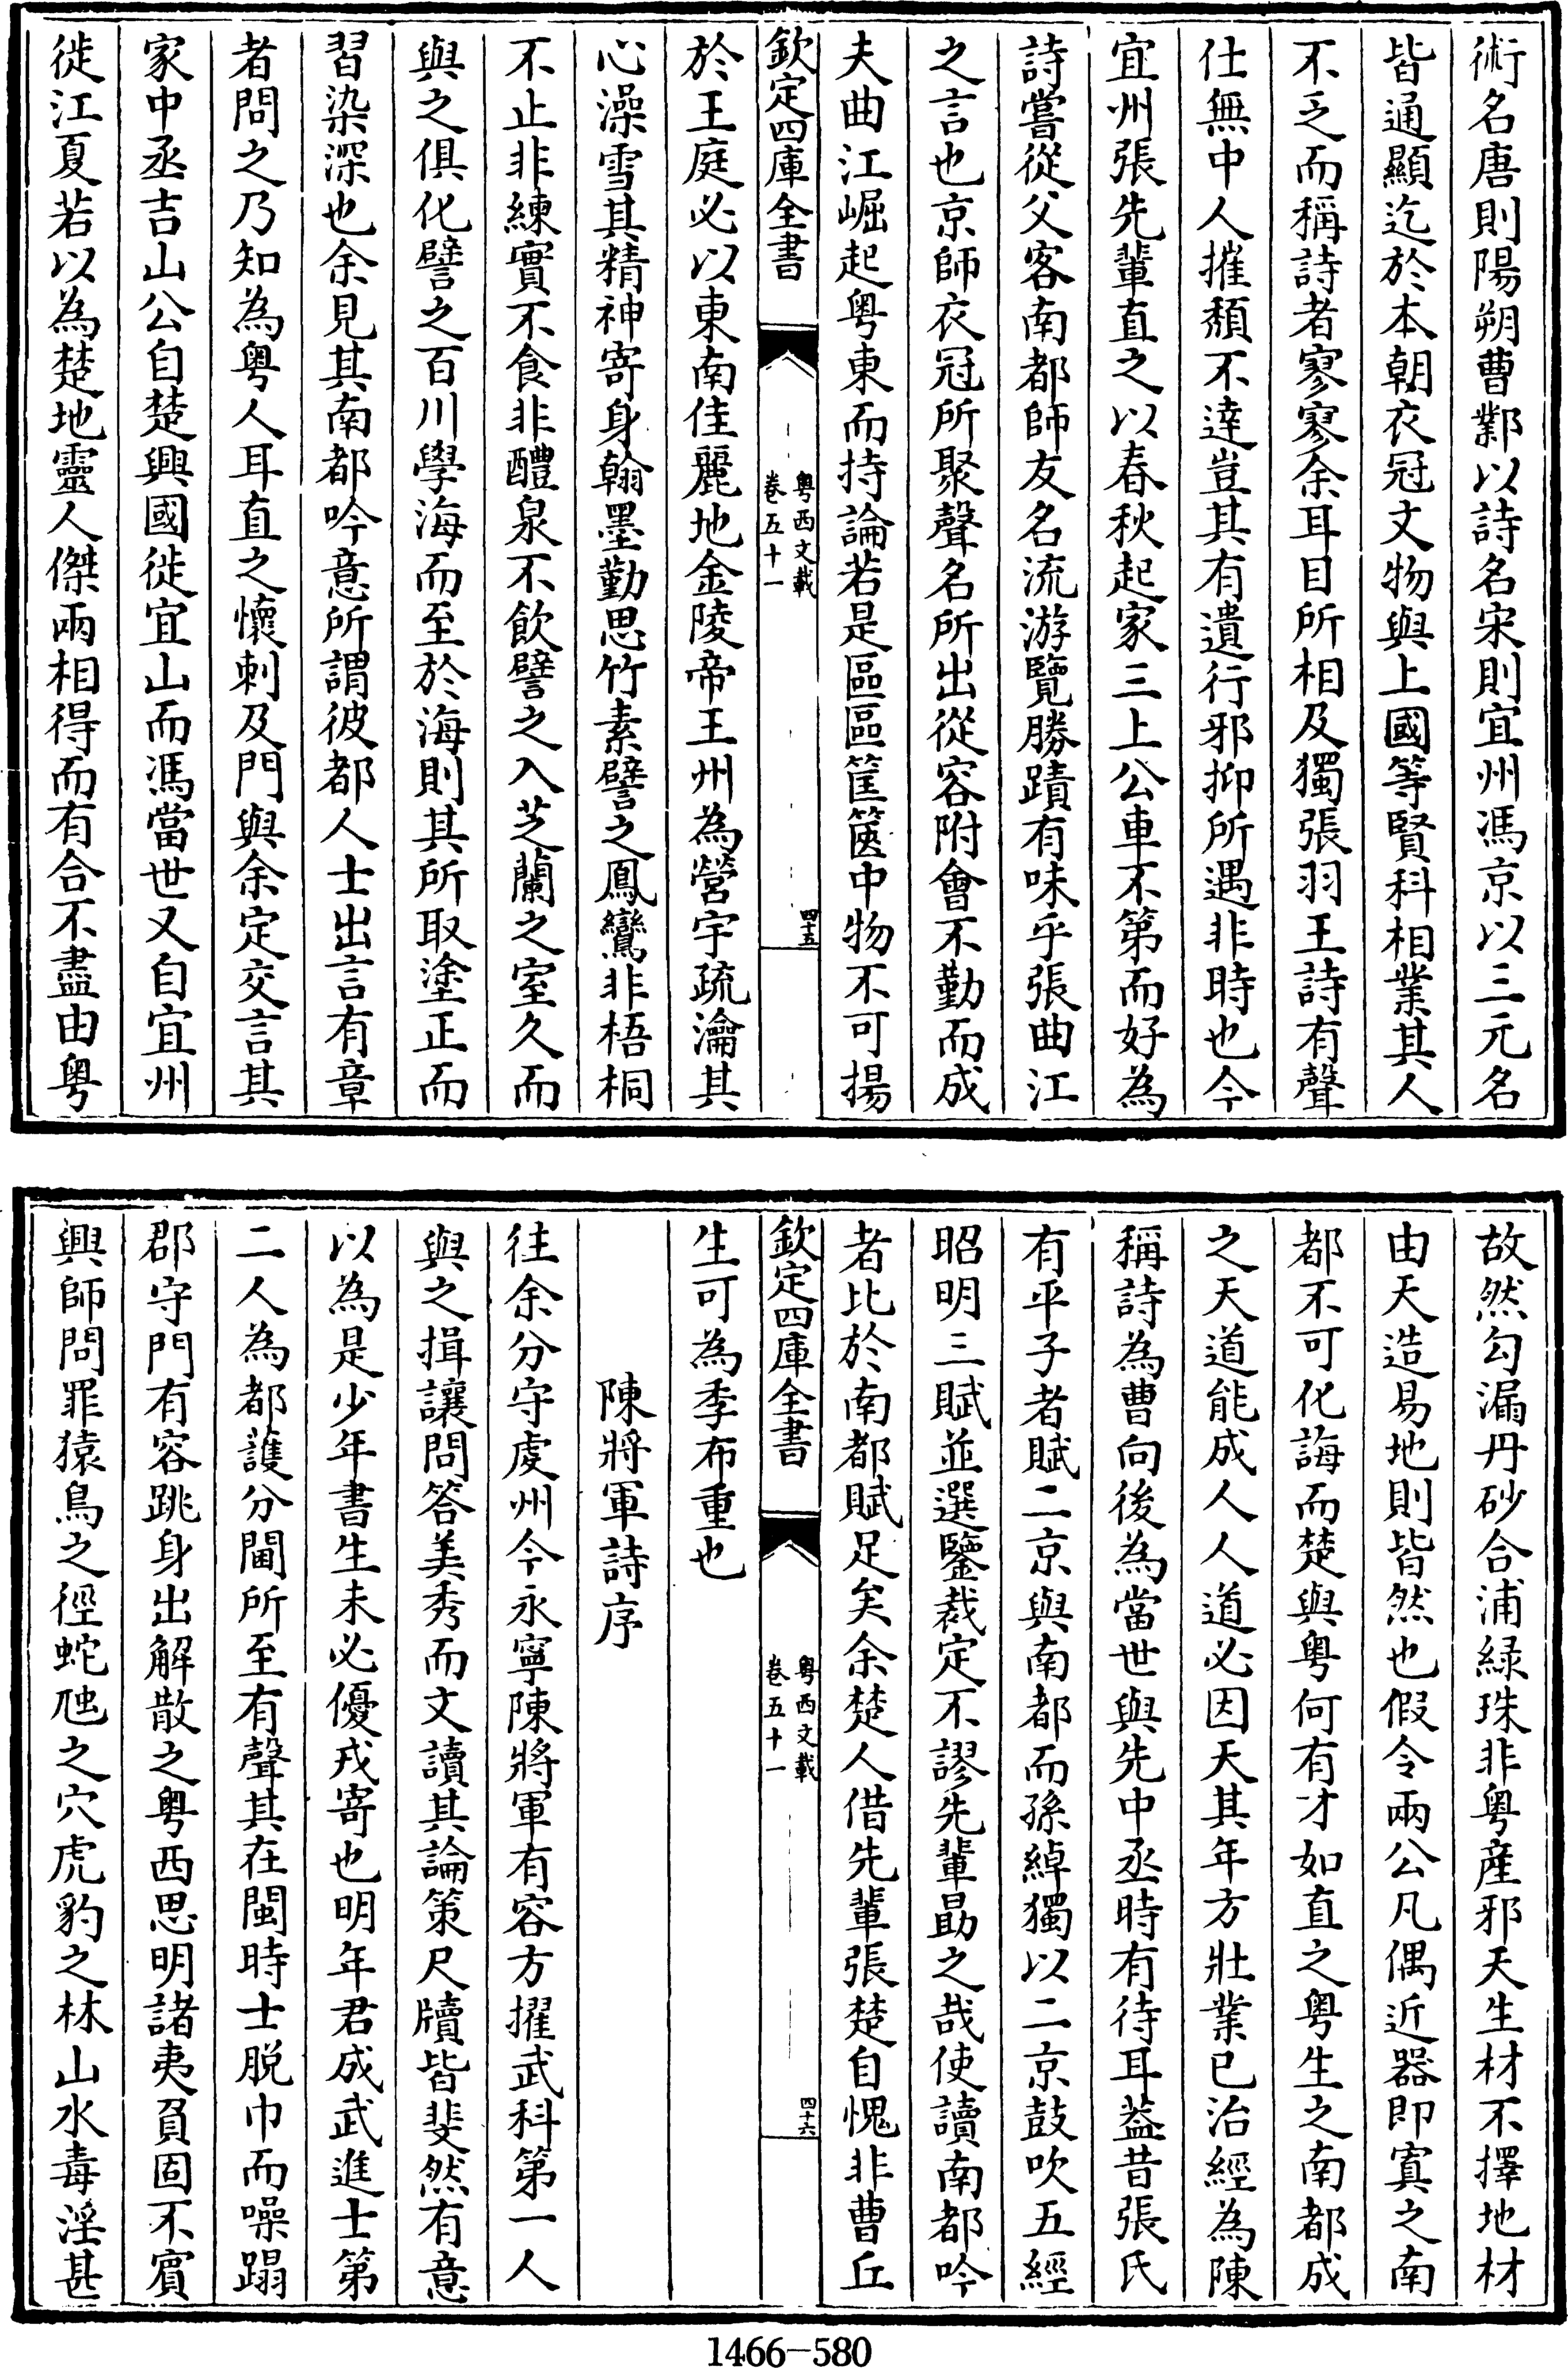 術名唐則陽朔曹鄴以詩名宋則宜州馮京以三元名
皆通顯迄於本朝衣冠文物與上國等賢科相業其人
不乏而稱詩者寥寥余耳目所相及獨張羽王詩有聲
仕無中人摧頽不達豈其有遺行邪抑所遇非時也今
宜州張先輩直之以春秋起家三上公車不第而好為
詩嘗從父客南都師友名流游覽勝蹟有味乎張曲江
之言也京師衣冠所聚聲名所出從容附會不勤而成
夫曲江崛起粤東而持論若是區區筐篋中物不可揚
欽定四庫全書
粤西文載
卷五十一
四十五
於王庭必以東南佳麗地金陵帝王州為營宇疏瀹其
心澡雪其精神寄身翰墨勤思竹素譬之鳳鸞非梧桐
不止非練實不食非醴泉不飲譬之入芝蘭之室久而
與之俱化譬之百川學海而至於海則其所取塗正而
習染深也余見其南都吟意所謂彼都人士出言有章
者問之乃知為粤人耳直之懷刺及門與余定交言其
家中丞吉山公自楚興國徙宜山而馮當世又自宜州
徙江夏若以為楚地靈人傑兩相得而有合不盡由粤
故然勾漏丹砂合浦緑珠非粤産邪天生材不擇地材
由天造易地則皆然也假令兩公凡偶近器即寘之南
都不可化誨而楚與粤何有才如直之粤生之南都成
之天道能成人人道必因天其年方壯業已治經為陳
稱詩為曹向後為當世與先中丞時有待耳葢昔張氏
有平子者賦二京與南都而孫綽獨以二京鼓吹五經
昭明三賦並選鑒裁定不謬先輩勗之哉使讀南都吟
者比於南都賦足矣余楚人借先輩張楚自愧非曹丘
欽定四庫全書
粤西文載
卷五十一
四十六
生可為季布重也
陳將軍詩序
往余分守虔州今永寧陳將軍有容方擢武科第一人
與之揖讓問答美秀而文讀其論策尺牘皆斐然有意
以為是少年書生未必優戎寄也明年君成武進士第
二人為都護分閫所至有聲其在閩時士脱巾而噪蹋
郡守門有容跳身出解散之粤西思明諸夷負固不賓
興師問罪猿鳥之徑蛇虺之穴虎豹之林山水毒淫甚
1466-580